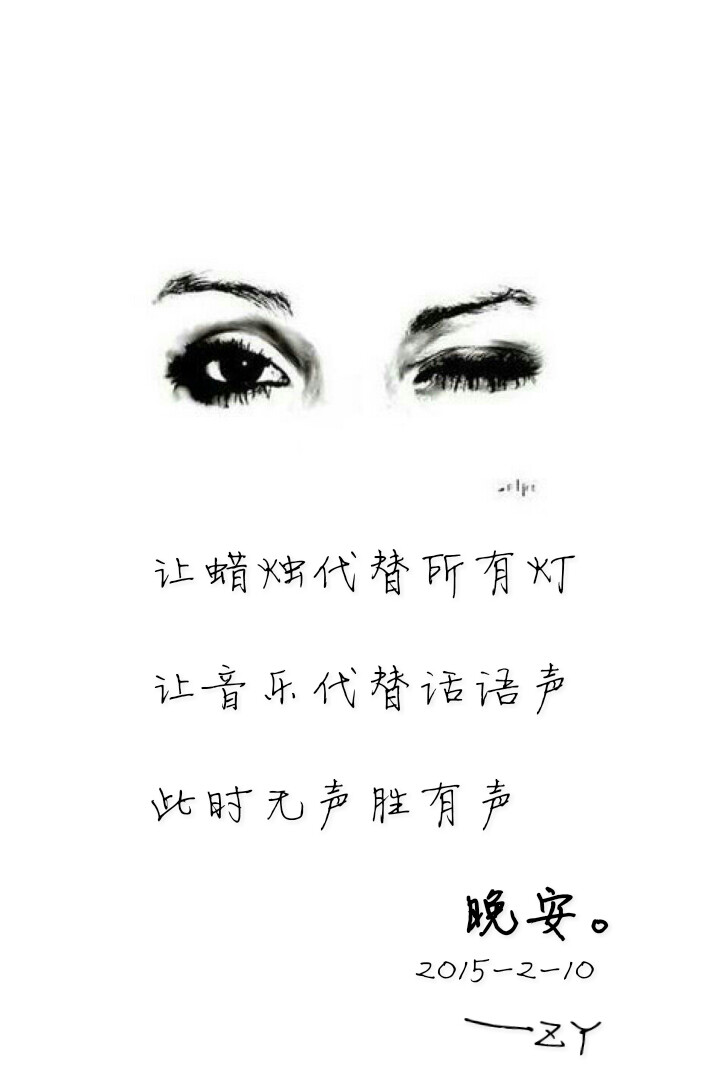 让蜡烛代替所有灯
让音乐代替话语声
此时无声胜有声
晚安。
2015-2-10
——ZY